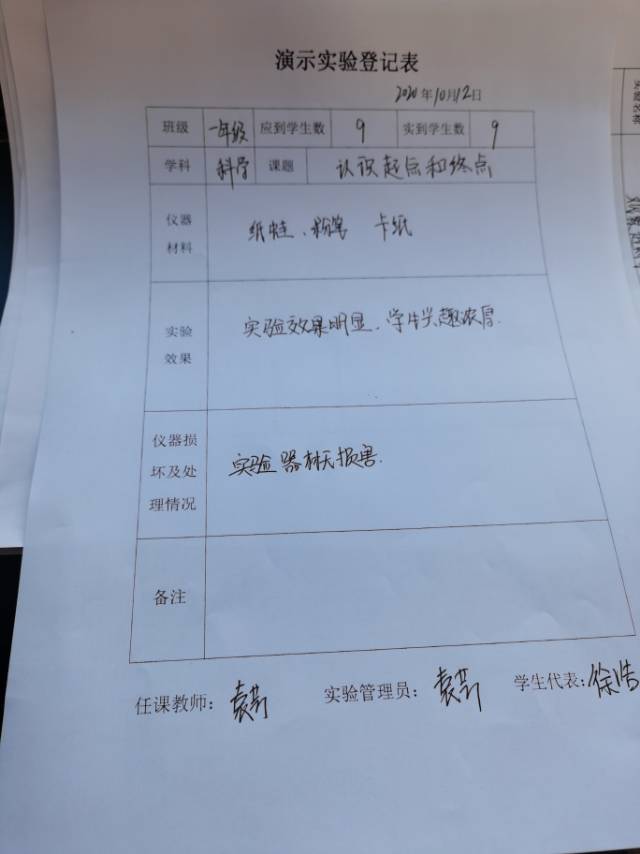 演示实验登记表
2020年10月12日
班级 一年级 应到学生数 9 实到学生数 9
学科 科学 课题 认识起点和终点
仪器
材料
纸蛙、粉笔 卡纸
实验
效果
实验效果明显、学生兴趣浓厚.
仪器损
坏及处
理情况
实验器材无损害.
备注
任课教师: 袁芳 实验管理员: 袁芳 学生代表: 徐浩